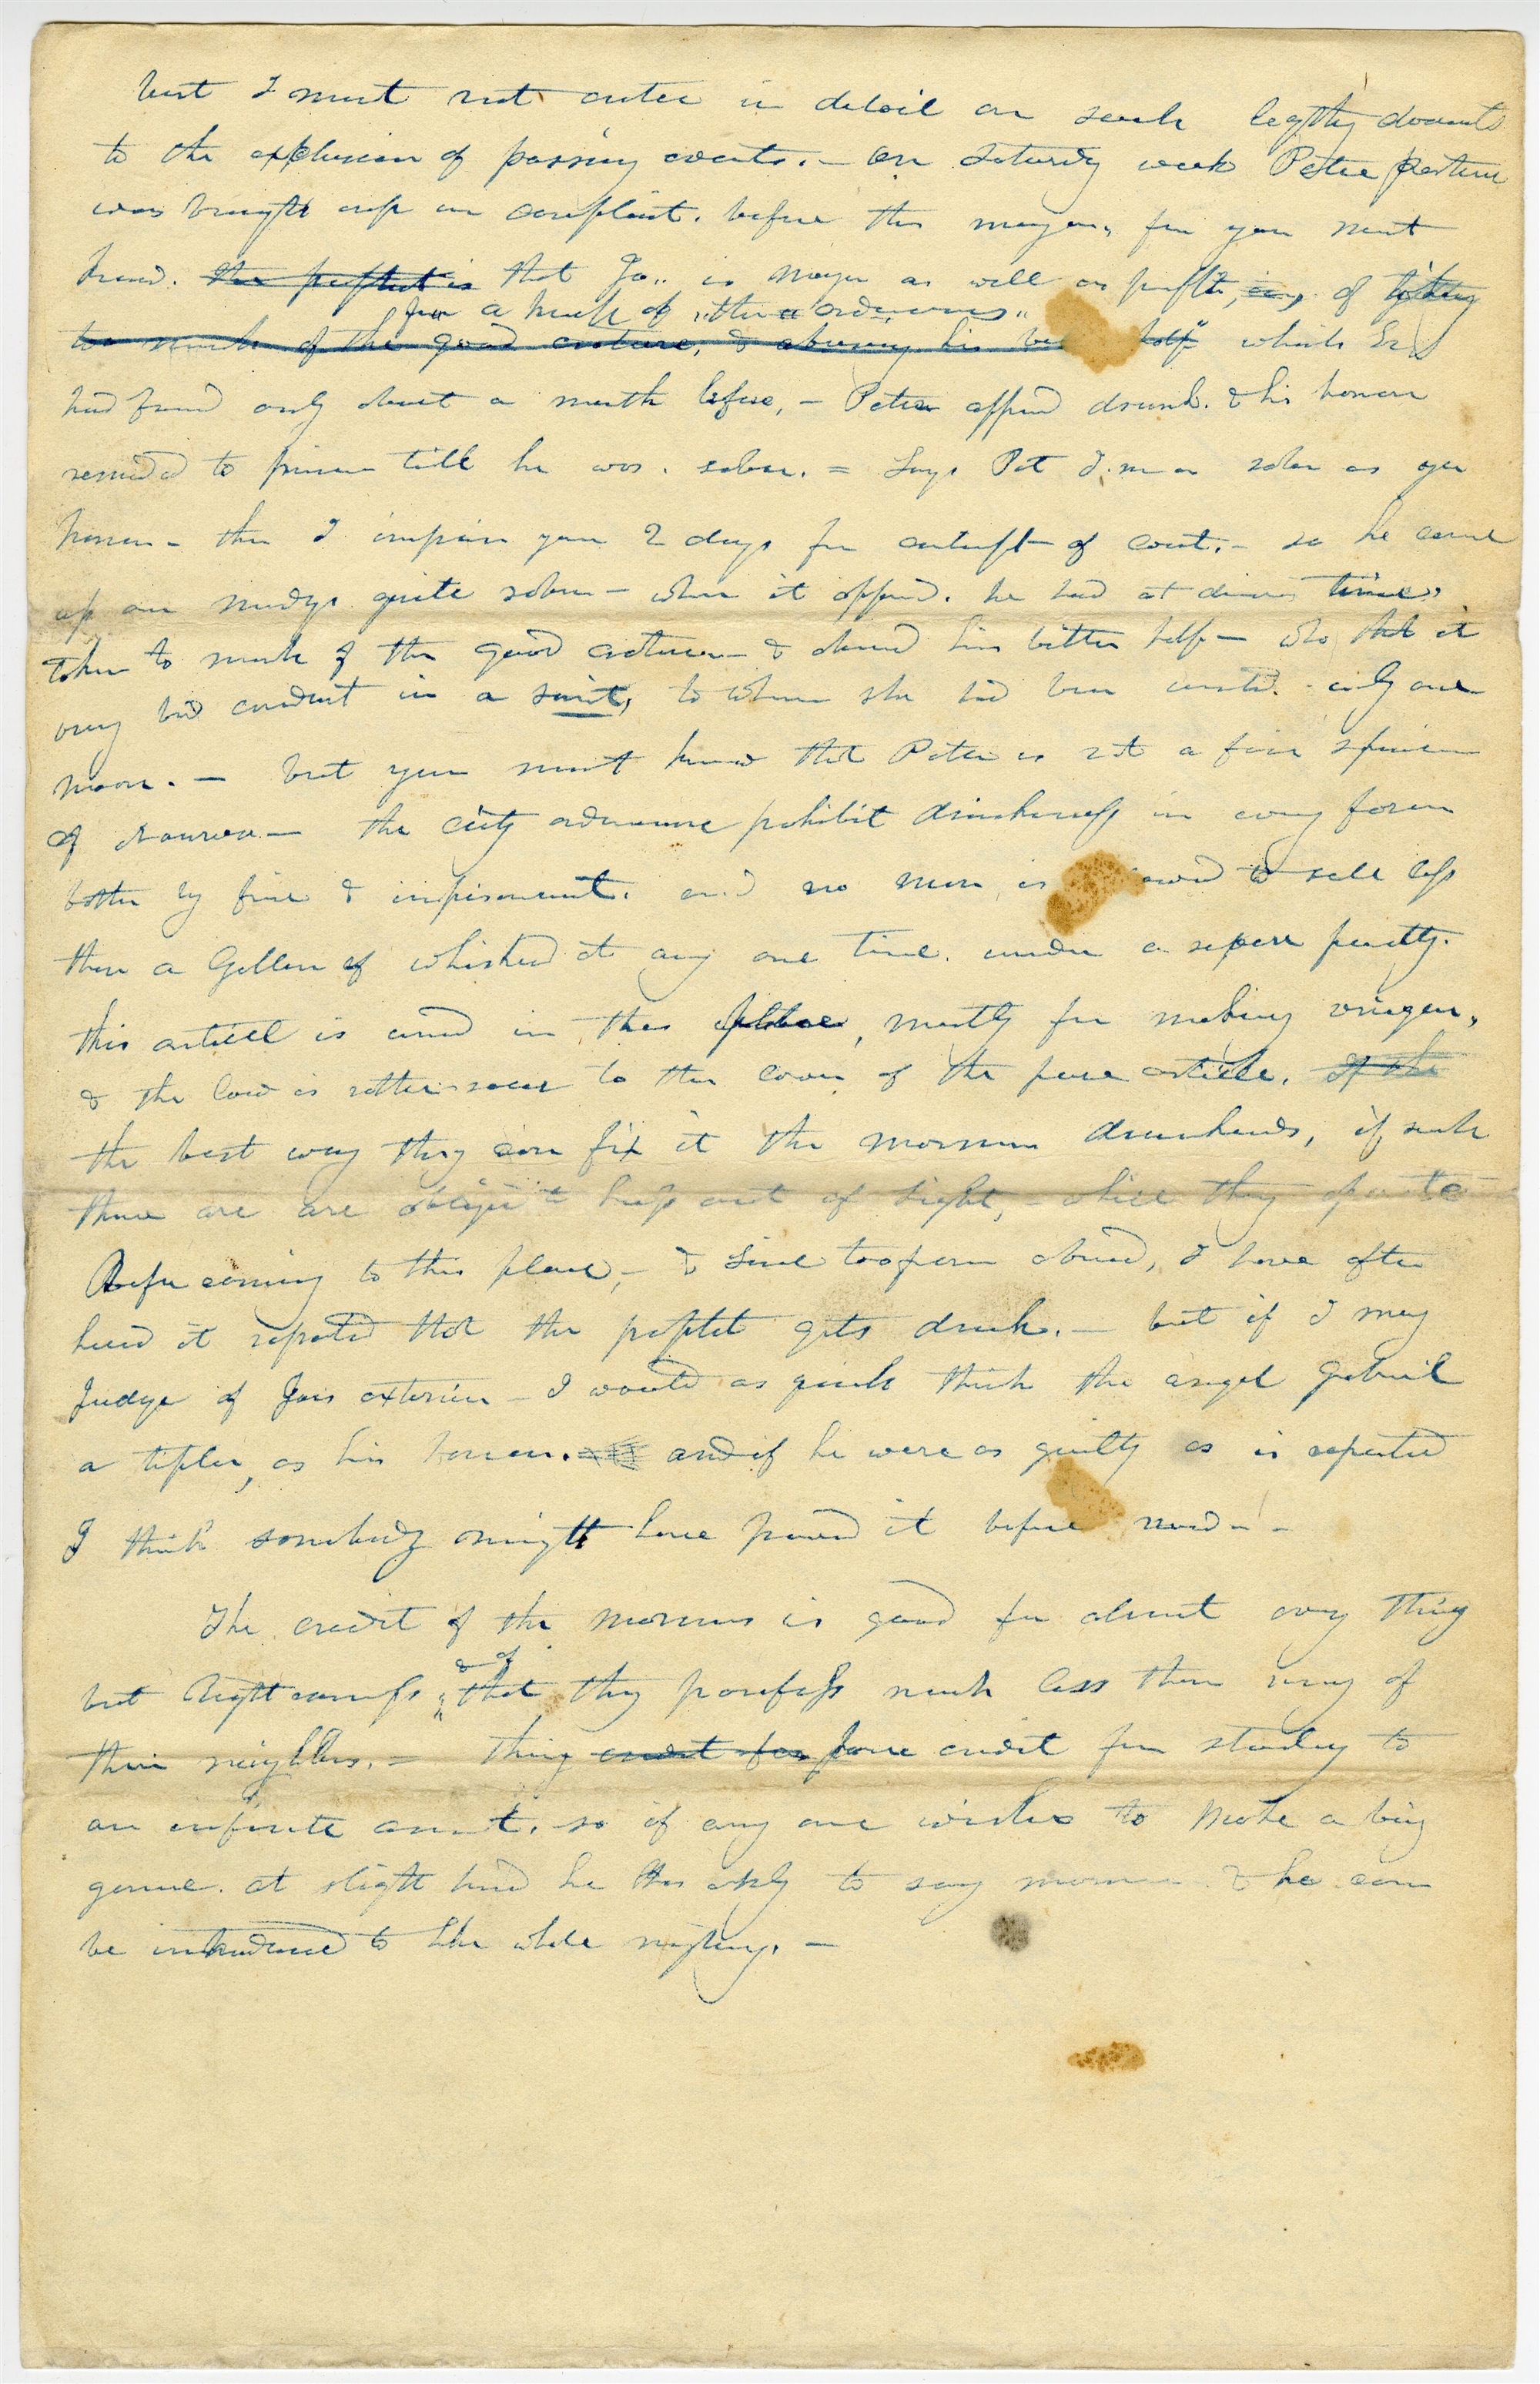 but I must not enter in detail on such legthy documts
to the explusion of passing events. – On Saturdy week Peter
was brought up on complaint. before the mayor, for you must
know. the prophet is that Jo.. is mayor as well as profit, of
for a breach of "the ordinances"
too much of the good creature, & abusing his be half" which
had found only about a month before, – Peter appeard drunk. & his honor
remided to prison till he was. sober. = Says Pet I.m as sober as yer
honor – then I imprison you 2 days for contempt of court. – so he came
up on mondy quite sober – when it appeard. he had at divers times
taken to much of the good creature – & abused his better half – who thot it
very bad conduct in a saint, to whom she had been united. only one
moon. – but you must know that Peter is not a fair specimen
of Nauvoo – the city ordinance prohibit drinkeness in every form
bothe by fine & imprisonment. and no man is owed to sell less
then a Gallon of whisked at any one time. under a sepere penalty.
this articel is used in this place, mostly for making vinegar,
& the law is rather sour to the lover of the pure article. if the
the best way they can fix it the mormon drunkards, if such
there are are obliged to keep out of sight, – while they oparate
Before coming to this place, – & since too, I have often
heard it repoted that the prophet gets drunk. – but if I may
Judge of Joes exterior – I would as quick think the angel Gabriel
a tipler, as his honor. and if he were as guilty as is repoted
I think somebody might have proved it before now. –
The credit of the mormons is good for about every thing
but
& of
that they possess much less then many of
their neighbors. – They credit for have credit for stealing to
an infinite amount. so if any one wishes to make a big
game. at slight hand he has only to say mormon & he can
be introduced to the whole mistery. –